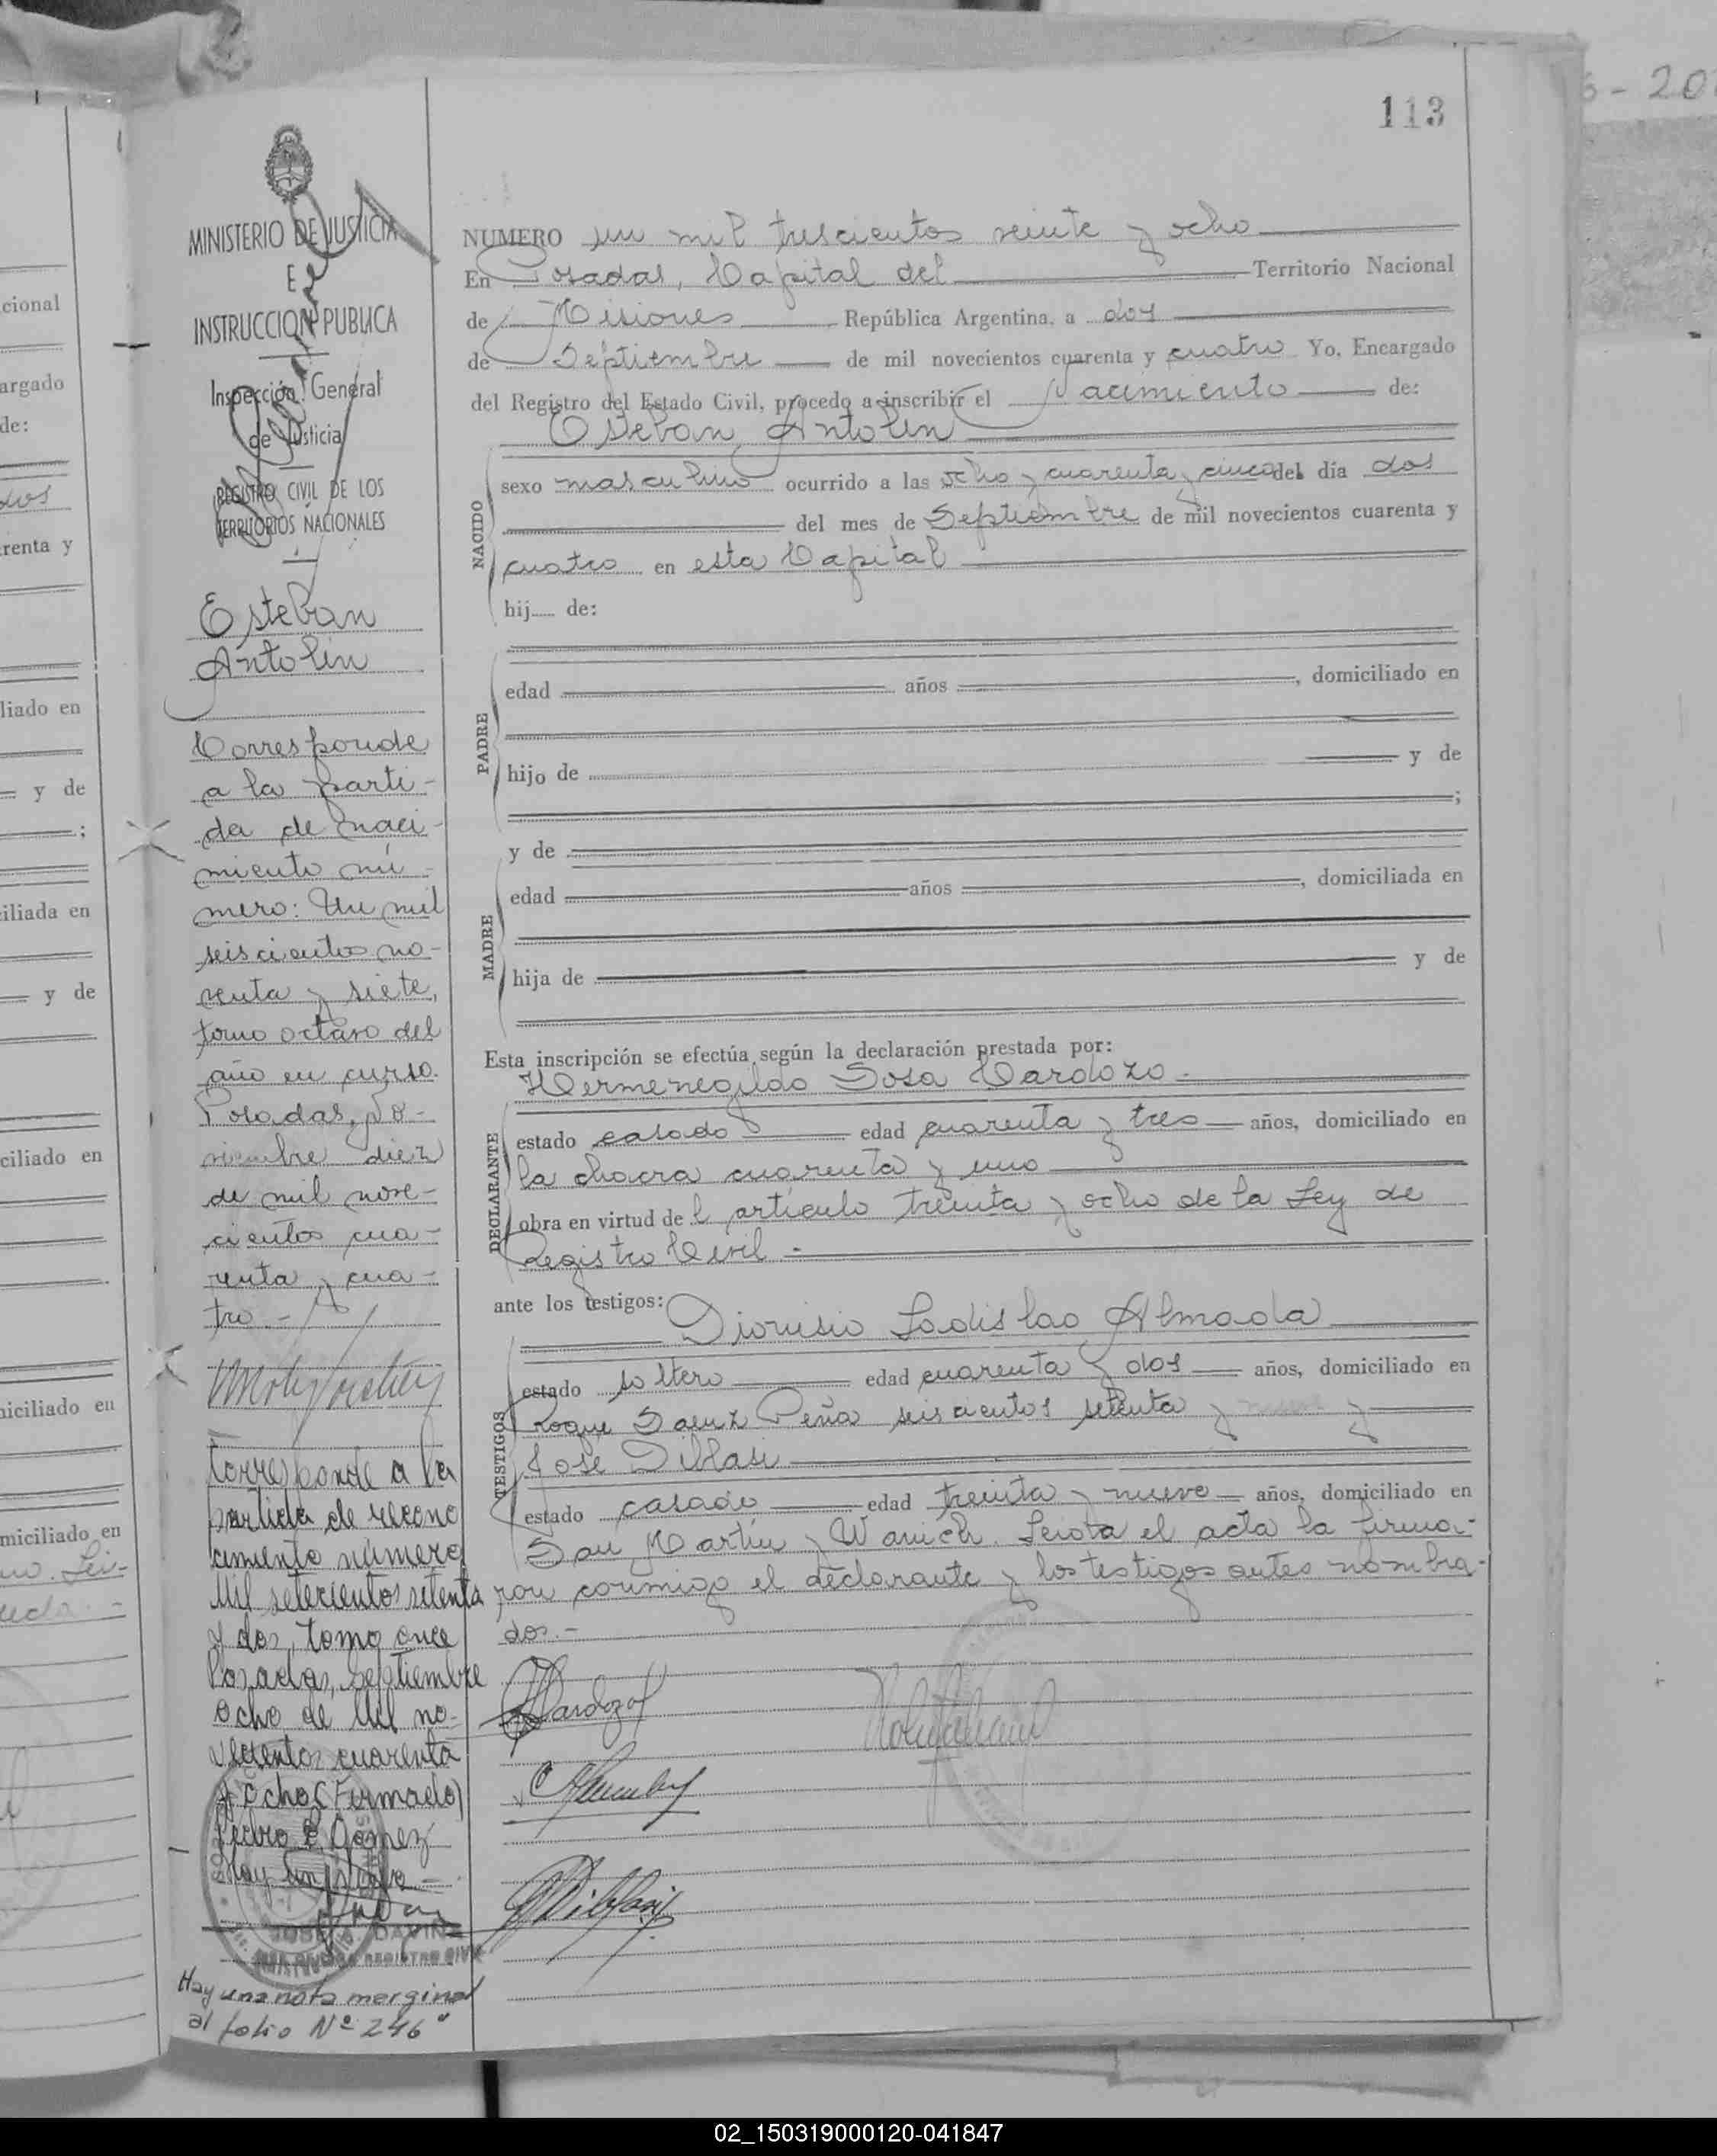 113
MINISTERIO DE JUSTICIA
E
INSTRUCCION PUBLICA
Inspección General
de Justicia
REGISTRO CIVIL DE LOS
TERRITORIOS NACIONALES
Esteban
Antolin
Corresponde
a la parti-
da de naci-
miento nú-
mero: Un mil
seiscientos no-
venta y siete,
tomo octavo del
año en curso.
Posadas, No-
viembre diez
de mil nove-
cientos cua-
renta y cua-
tro.-
Corresponde a la
partida de recono
cimiento número
Mil setecientos setenta
y dos, tomo once
Posadas, Septiembre
ocho de Mil no-
vecientos cuarenta
y ocho (Firmado)
Pedro E Gomez
Hay un sello -
JOSE A. DAVIÑA
REGISTRO CIVIL
Hay una nota marginal
al folio Nº 246"
NUMERO un mil trescientos veinte y ocho
En Posadas, Capital del Territorio Nacional
de Misiones República Argentina, a dos
de Septiembre de mil novecientos cuarenta y cuatro Yo, Encargado
del Registro del Estado Civil, procedo a inscribir el Nacimiento de:
Esteban Antolin
NACIDO
sexo masculino ocurrido a las ocho y cuarenta y cinco del día dos
del mes de Septiembre de mil novecientos cuarenta y
cuatro en esta Capital
hij de:
PADRE
edad años , domiciliado en
hijo de y de
;
MADRE
y de
edad años , domiciliada en
hija de y de
Esta inscripción se efectúa según la declaración prestada por:
Hermenegildo Sosa Cardozo.-
DECLARANTE
estado casado edad cuarenta y tres años, domiciliado en
la chacra cuarenta y uno
obra en virtud de l artículo treinta y ocho de la Ley de
Registro Civil.-
ante los testigos:
Dionisio Ladislao Almada
TESTIGOS
estado soltero edad cuarenta y dos años, domiciliado en
Roque Saenz Peña seiscientos setenta y nueve y
José Diblasi
estado casado edad treinta y nueve años, domiciliado en
San Martín y W. Leida el acta la firma-
ron conmigo el declarante y los testigos antes nombra-
dos.-
Cardozo
Diblasi
cional
argado
de:
dos
renta y
liado en
y de
;
iliada en
y de
ciliado en
niciliado en
miciliado en
02_150319000120-041847